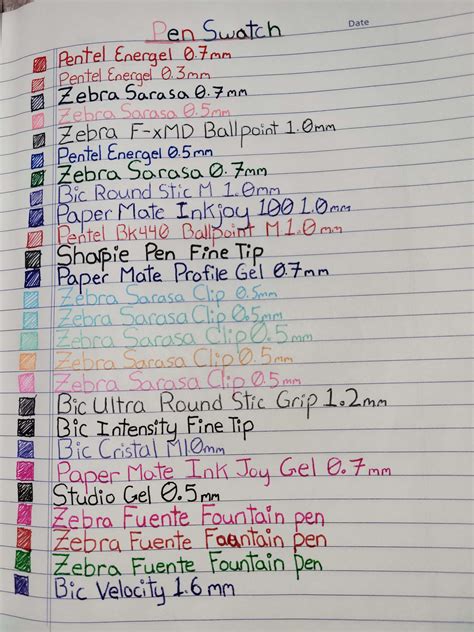 Pen Swatch
Date
Pentel Energel 0.7mm
Pentel Energel 0.3mm
Zebra Sarasa 0.7mm
Zebra Sarasa 0.5mm
Zebra F-xMD Ballpoint 1.0mm
Pentel Energel 0.5mm
Zebra Sarasa 0.7mm
Bic Round Stic M 1.0mm
Paper Mate Inkjoy 100 1.0mm
Pentel Bk440 Ballpoint M 1.0mm
Sharpie Pen Fine Tip
Paper Mate Profile Gel 0.7mm
Zebra Sarasa Clip 0.5mm
Zebra Sarasa Clip 0.5mm
Zebra Sarasa Clip 0.5mm
Zebra Sarasa Clip 0.5mm
Zebra Sarasa Clip 0.5mm
Bic Ultra Round Stic Grip 1.2mm
Bic Intensity Fine Tip
Bic Cristal M10mm
Paper Mate Ink Joy Gel 0.7mm
Studio Gel 0.5mm
Zebra Fuente Fountain pen
Zebra Fuente Fountain pen
Zebra Fuente Fountain pen
Bic Velocity 1.6mm